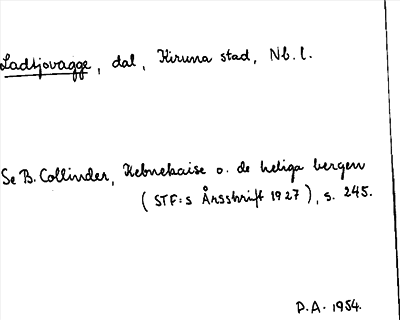 Ladtjovagge, dal, Kiruna stad, Nb. l.
Se B. Collinder, Kebnekaise o. de heliga bergen
(STF:s Årsskrift 1927), s. 245.
P.A. 1954.